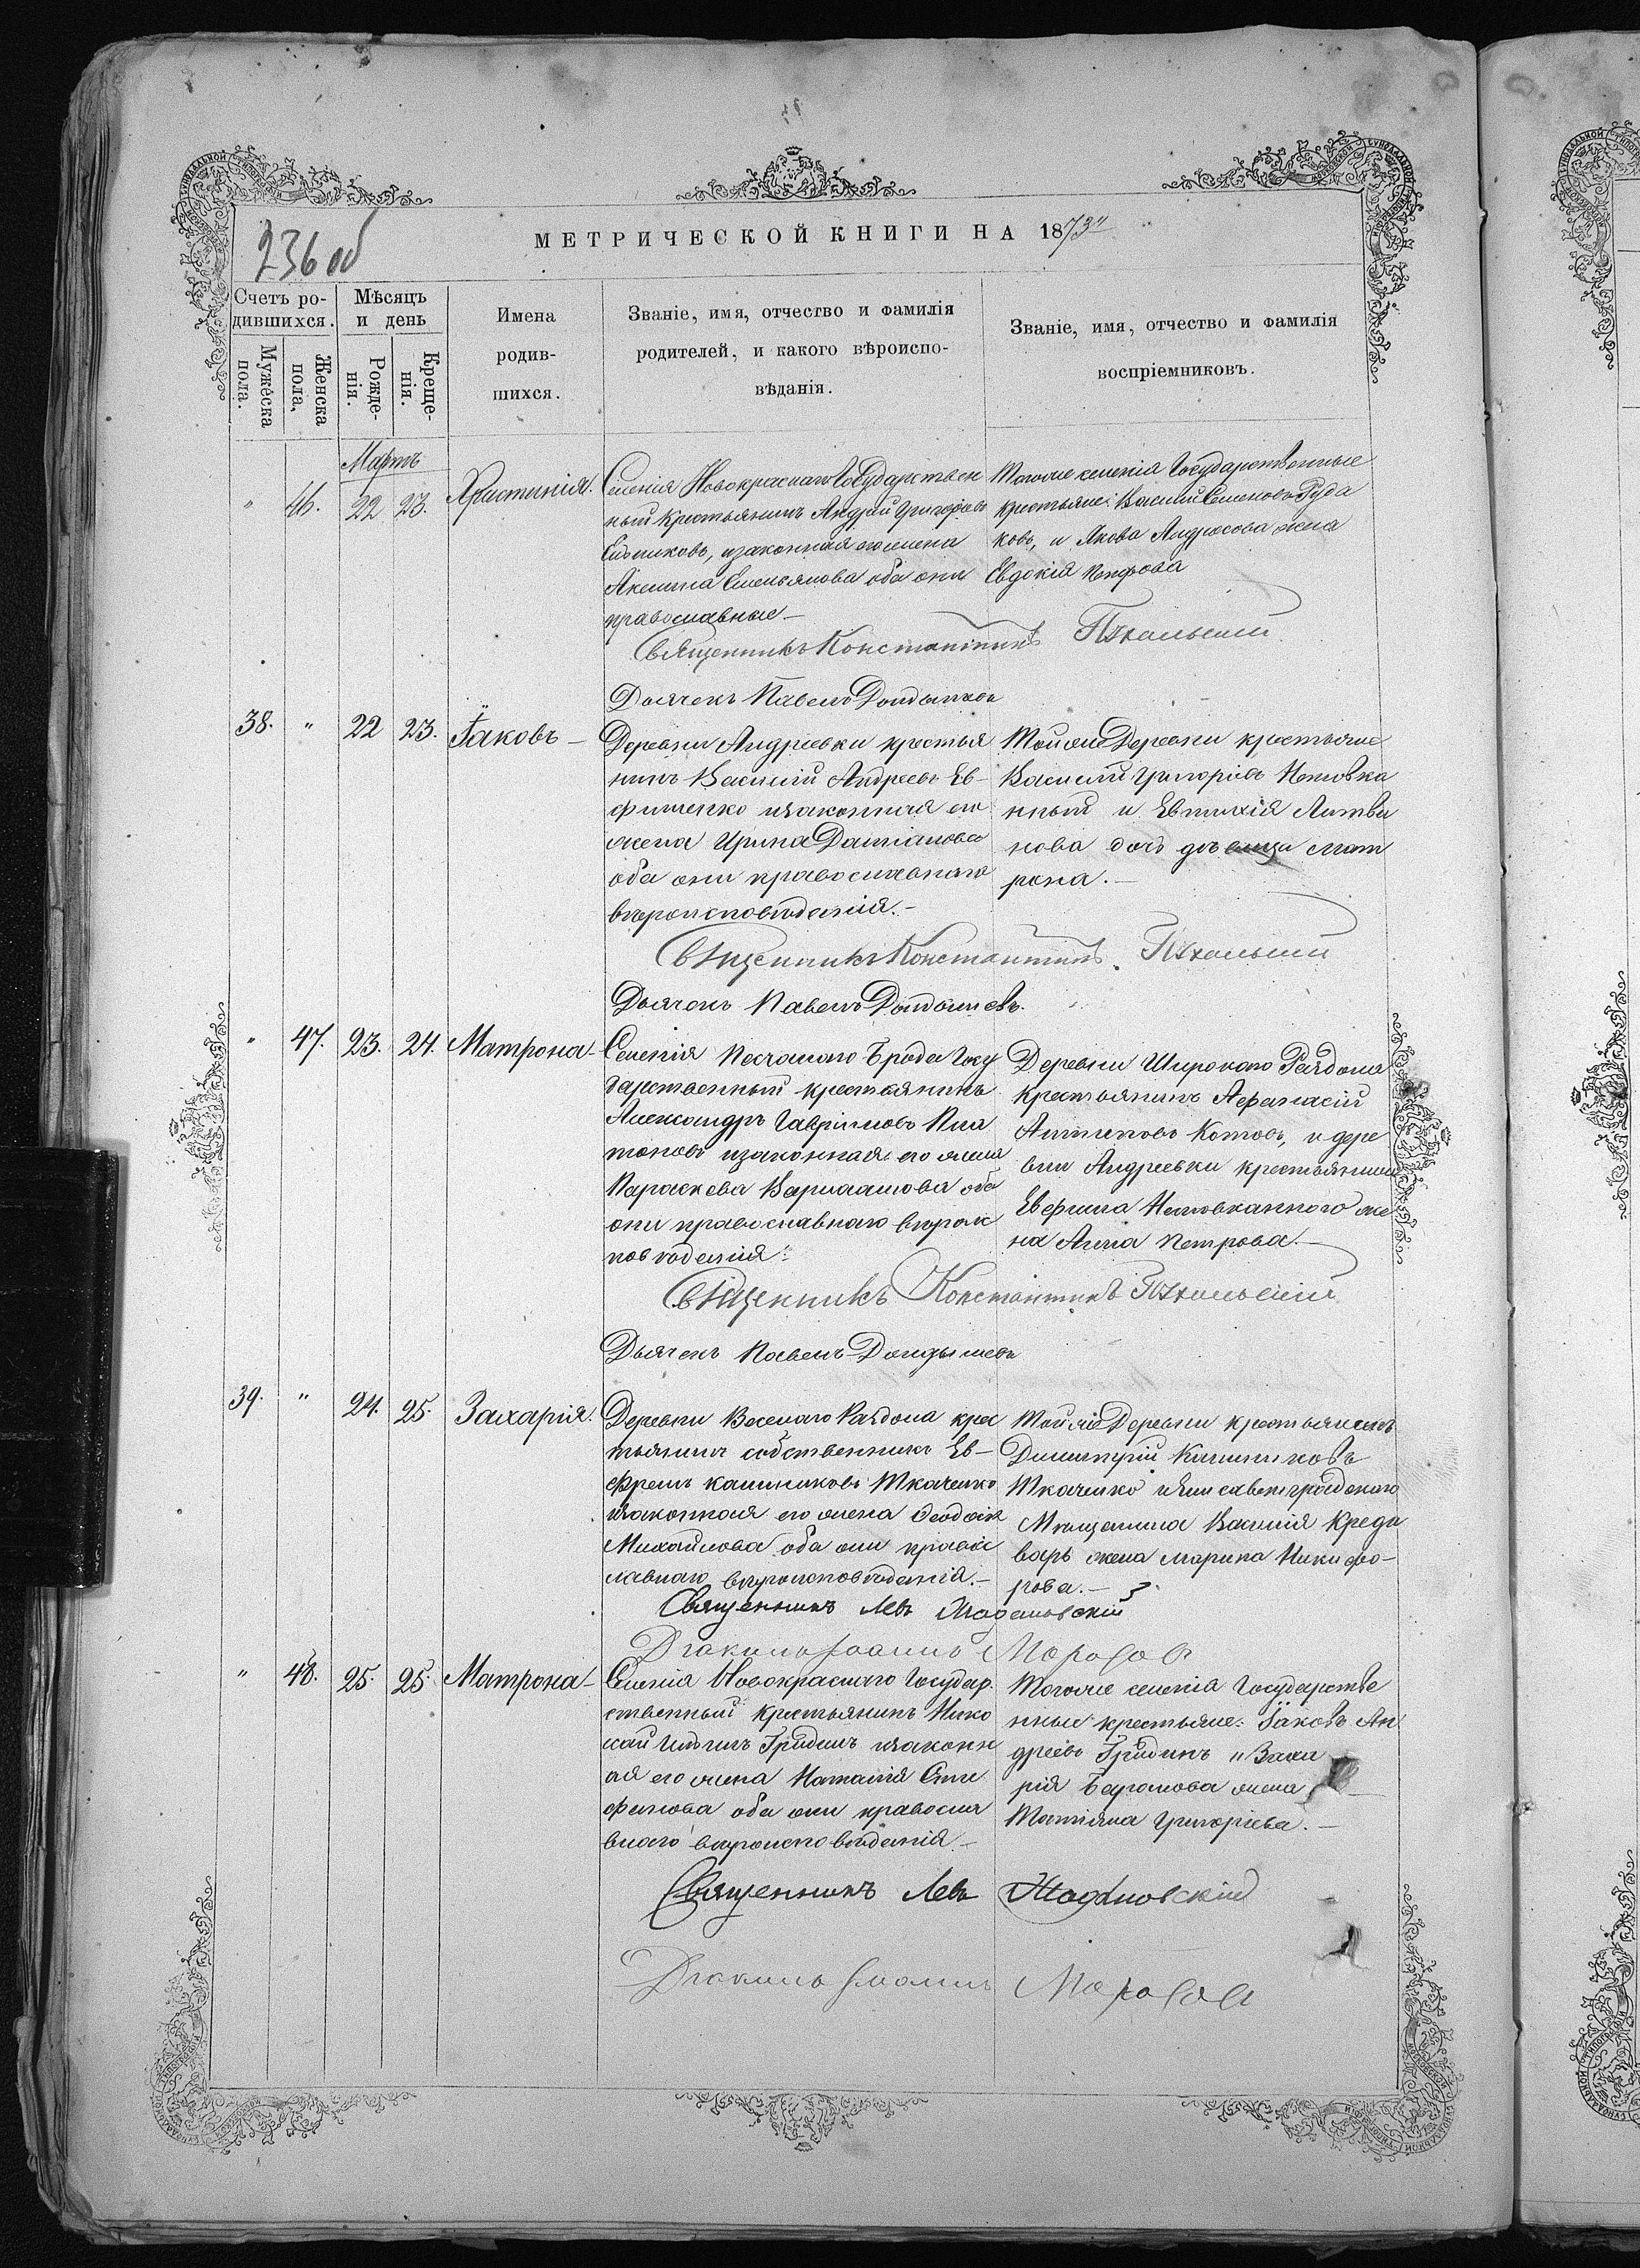 236 об
МЕТРИЧЕСКОЙ КНИГИ НА 1873й
Счетъ ро-
дившихся.
Мужеска
пола.
Женска
пола.
Мѣсяцъ
и день
Рожде-
нія.
Креще-
нія.
Имена
родив-
шихся.
Званіе, имя, отчество и фамилія
родителей, и какого вѣроиспо-
вѣданія.
Званіе, имя, отчество и фамилія
воспріемниковъ.
Мартъ
" 46. 22 23. Христинія.
Селенія Новокраснаго Государствен
ный Крестьянинъ Андрей Григорьевъ
изаконная его жена
Акелина Емельянова оба они
православные
Тогоже селенія Государственные
крестьяне: Василій Семеновъ Руда
ковъ, и Якова Андросова жена
Евдокія Петрова
Священникъ Константинъ
Дьячекъ Павелъ
38. " 22 23. Іаковъ
Деревни Андреевки крестья
нинъ Василій Андреевъ Ев-
фименко изаконная его
жена Ирина Даміанова
оба они православнаго
вѣроисповѣданія.
Тойже Деревни крестьяне
Василій Григоріевъ Неповка
нный и Евтихія Литви
нова дочь дѣвица Мат
рона.
Священникъ Константинъ
Дьячекъ Павелъ
" 47. 23. 24. Матрона
Селенія Песчанаго Брода Госу
дарственный крестьянинъ
Александръ Гавріиловъ Пла
тоновъ изаконная его жена
Параскева Варлаамова оба
они православнаго вѣроис
повѣданія.
Деревни Широкаго Раздола
Крестьянинъ Афанасій
Антиповъ Котовъ, и дере
вни Андреевки крестьянина
Евфима Неповканного же
на Анна Петрова.
Священникъ Константинъ
Дьячекъ Павелъ
39. " 24. 25. Захарія.
Деревни Веселаго Раздола крес
тьянинъ собственникъ Ев-
фремъ Калиниковъ Ткаченко
изаконная его жена Феодосія
Михайлова оба они правос
лавнаго вѣроисповѣданія.
Тойже Деревни крестьянинъ
Димитрій Калиниковъ
Ткаченко иЕлисаветградскаго
Мѣщанина Василія Креди
варь жена Марина Никифо-
рова.
Священникъ Левъ
Діаконъ Іоаннъ
" 48. 25. 25. Матрона
Селенія Новокраснаго Государ
ственный Крестьянинъ Нико
лай Ильинъ Гридинъ изаконн
ая его жена Наталія Сте
фанова оба они правосла
внаго вѣроисповѣданія
Тогоже селенія Государстве
нные крестьяне: Іаковъ Ан
дреевъ Гридинъ и Заха
рія жена
Татіана Григоріева.
Священникъ Левъ
Діаконъ Іоаннъ